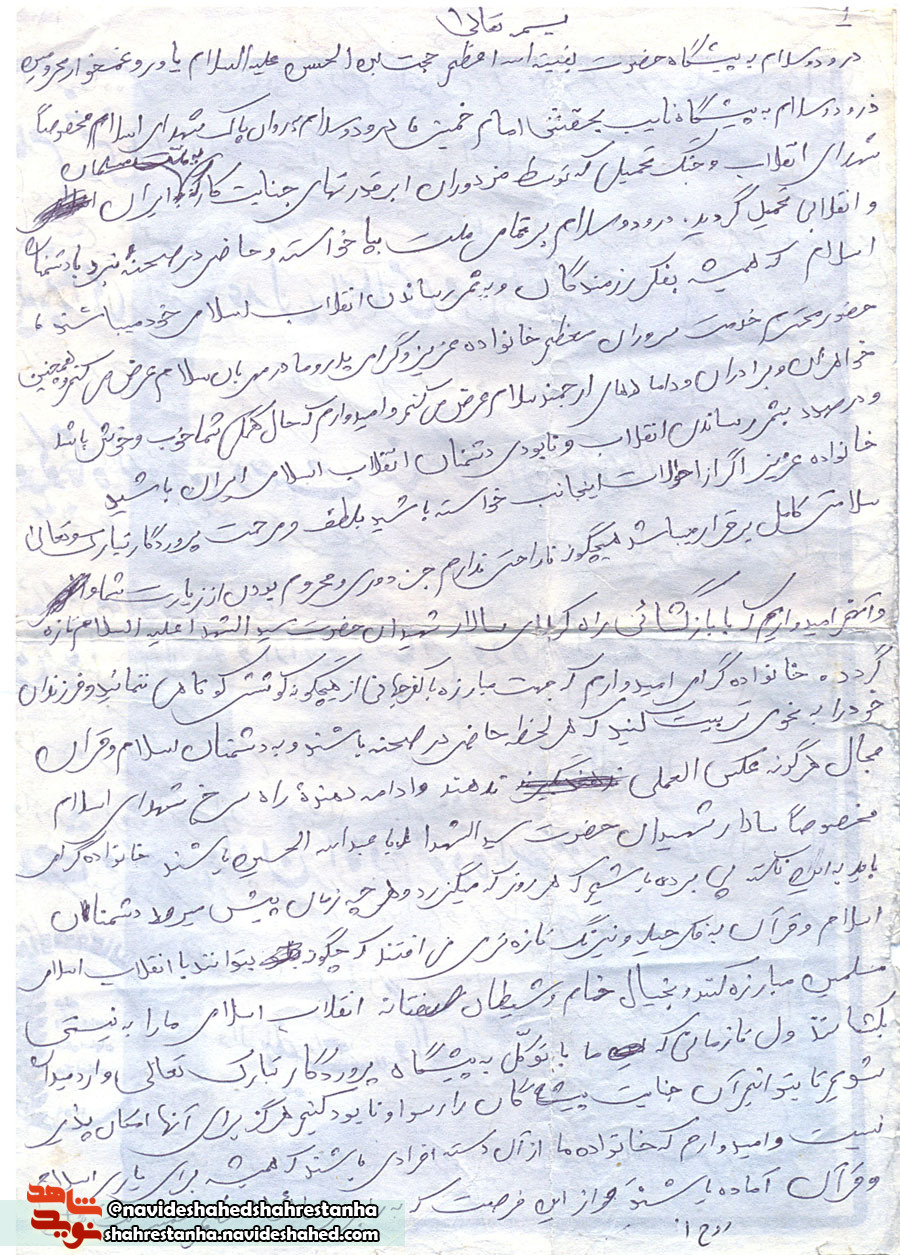 ۱
بسمه تعالی
درود و سلام به پیشگاه حضرت بقیة الله اعظم حجت بن الحسن علیه السلام یاور و غمخوار محرومین
درود و سلام به پیشگاه نایب بحقش امام خمینی با درود و سلام بر روان پاک شهدای اسلام مخصوصاً
شهدای انقلاب و جنگ تحمیلی که توسط مزدوران ابرقدرتهای جنایت کار به ملت مسلمان ایران
و انقلابی تحمیل گردید. درود و سلام بر تمامی ملت بپا خواسته و حاضر در صحنهٔ نبرد با دشمنان
اسلام که همیشه بفکر رزمندگان و به ثمر رساندن انقلاب اسلامی خود میباشند
حضور محترم خدمت سروران معظم خانواده عزیز و گرامی پدر و مادر مهربان سلام عرض می کنم و همچنین
خواهران و برادران و دامادهای ارجمند سلام عرض می کنم و امیدوارم که حال همگی شما خوب و خوش باشد
و در صدد بثمر رساندن انقلاب و نابودی دشمنان انقلاب اسلامی ایران باشید
خانواده عزیز اگر از احوالات اینجانب خواسته باشید بلطف و رحمت پروردگار تبارک و تعالی
سلامتی کامل برقرار میباشد هیچگونه ناراحتی ندارم جز دوری و محروم بودن از زیارت شما
و آنهم امیدواریم که با بازگشائی راه کربلای سالار شهیدان حضرت سید الشهدا علیه السلام تازه
گردد. خانواده گرامی امیدوارم که جهت مبارزه با کفر جهانی از هیچگونه کوششی کوتاهی ننمائید و فرزندان
خود را به نحوی تربیت کنید که هر لحظه حاضر در صحنه باشند و به دشمنان اسلام و قرآن
مجال هرگونه عکس العملی ندهند و ادامه دهندهٔ راه سرخ شهدای اسلام
مخصوصاً سالار شهیدان حضرت سید الشهدا یا عبدالله الحسین باشند خانواده گرامی
باید به این نکته پی برده باشیم که هر روز که میگزرد و هر چه زمان پیش میرود دشمنان
اسلام و قرآن به فکر حیله و نیرنگ تازه تری می افتند که چگونه بتوانند با انقلاب اسلامی
مسلمین مبارزه کنند و بخیال خام و شیطان صفتانه انقلاب اسلامی ما را به نیستی
بکشانند ولی تا زمانی که ما با توکل به پیشگاه پروردگار تبارک تعالی وارد میدان
شویم تا بتوانیم آن جنایت پیشه گان را رسوا و نابود کنیم هرگز برای آنها امکان پذیر
نیست و امیدوارم که خانواده ما از آن دسته افرادی باشند که همیشه برای یاری اسلام
و قرآن آماده باشند و از این فرصت که به
شاهد
نوید
@navideshahedshahrestanha
shahrestanha.navideshahed.com